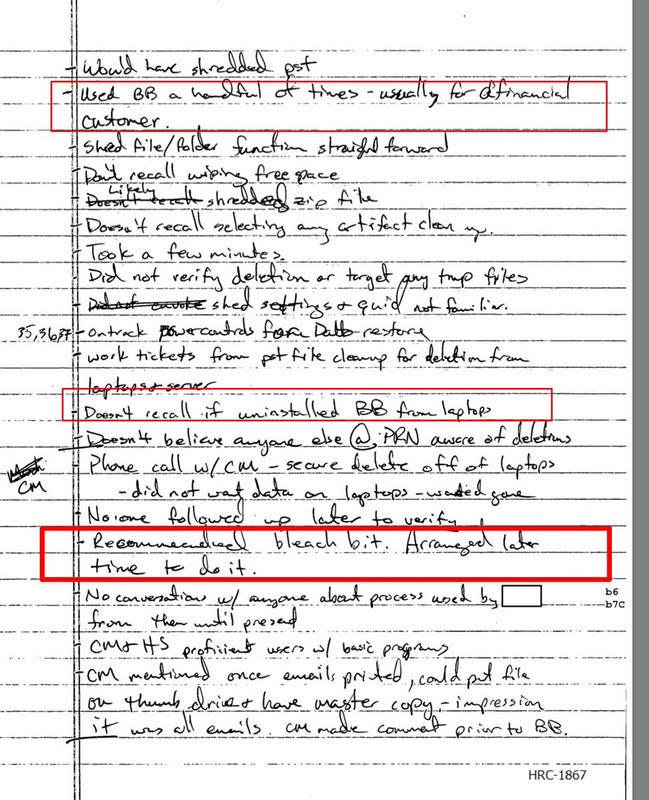 - Would have shredded pst
- Used BB a handful of times - usually for financial
customer.
- Shed file/folder function straight forward
- Don't recall wiping free space
Likely
- Doesn't recall shredded zip file
- Doesn't recall selecting any artifact clean up.
- Took a few minutes.
- Did not verify deletion or target any tmp files
- Did not invoke shed settings + guid not familiar.
35,36,37 - ontrack powercontrols for a Datto restore
- work tickets from pst file cleanup for deletion from
laptops + server
- Doesn't recall if uninstalled BB from laptops
- Doesn't believe anyone else @ PRN aware of deletions
- Phone call w/ CM - secure delete off of laptops
CM
- did not want data on laptops - wanted gone
- No one followed up later to verify
- Recommended bleach bit. Arranged later
time to do it.
- No conversations w/ anyone about process used by
b6
b7C
from then until present
- CM + HS proficient users w/ basic programs
- CM mentioned once emails printed, could put file
on thumb drive + have master copy - impression
it was all emails. CM made comment prior to BB.
HRC-1867